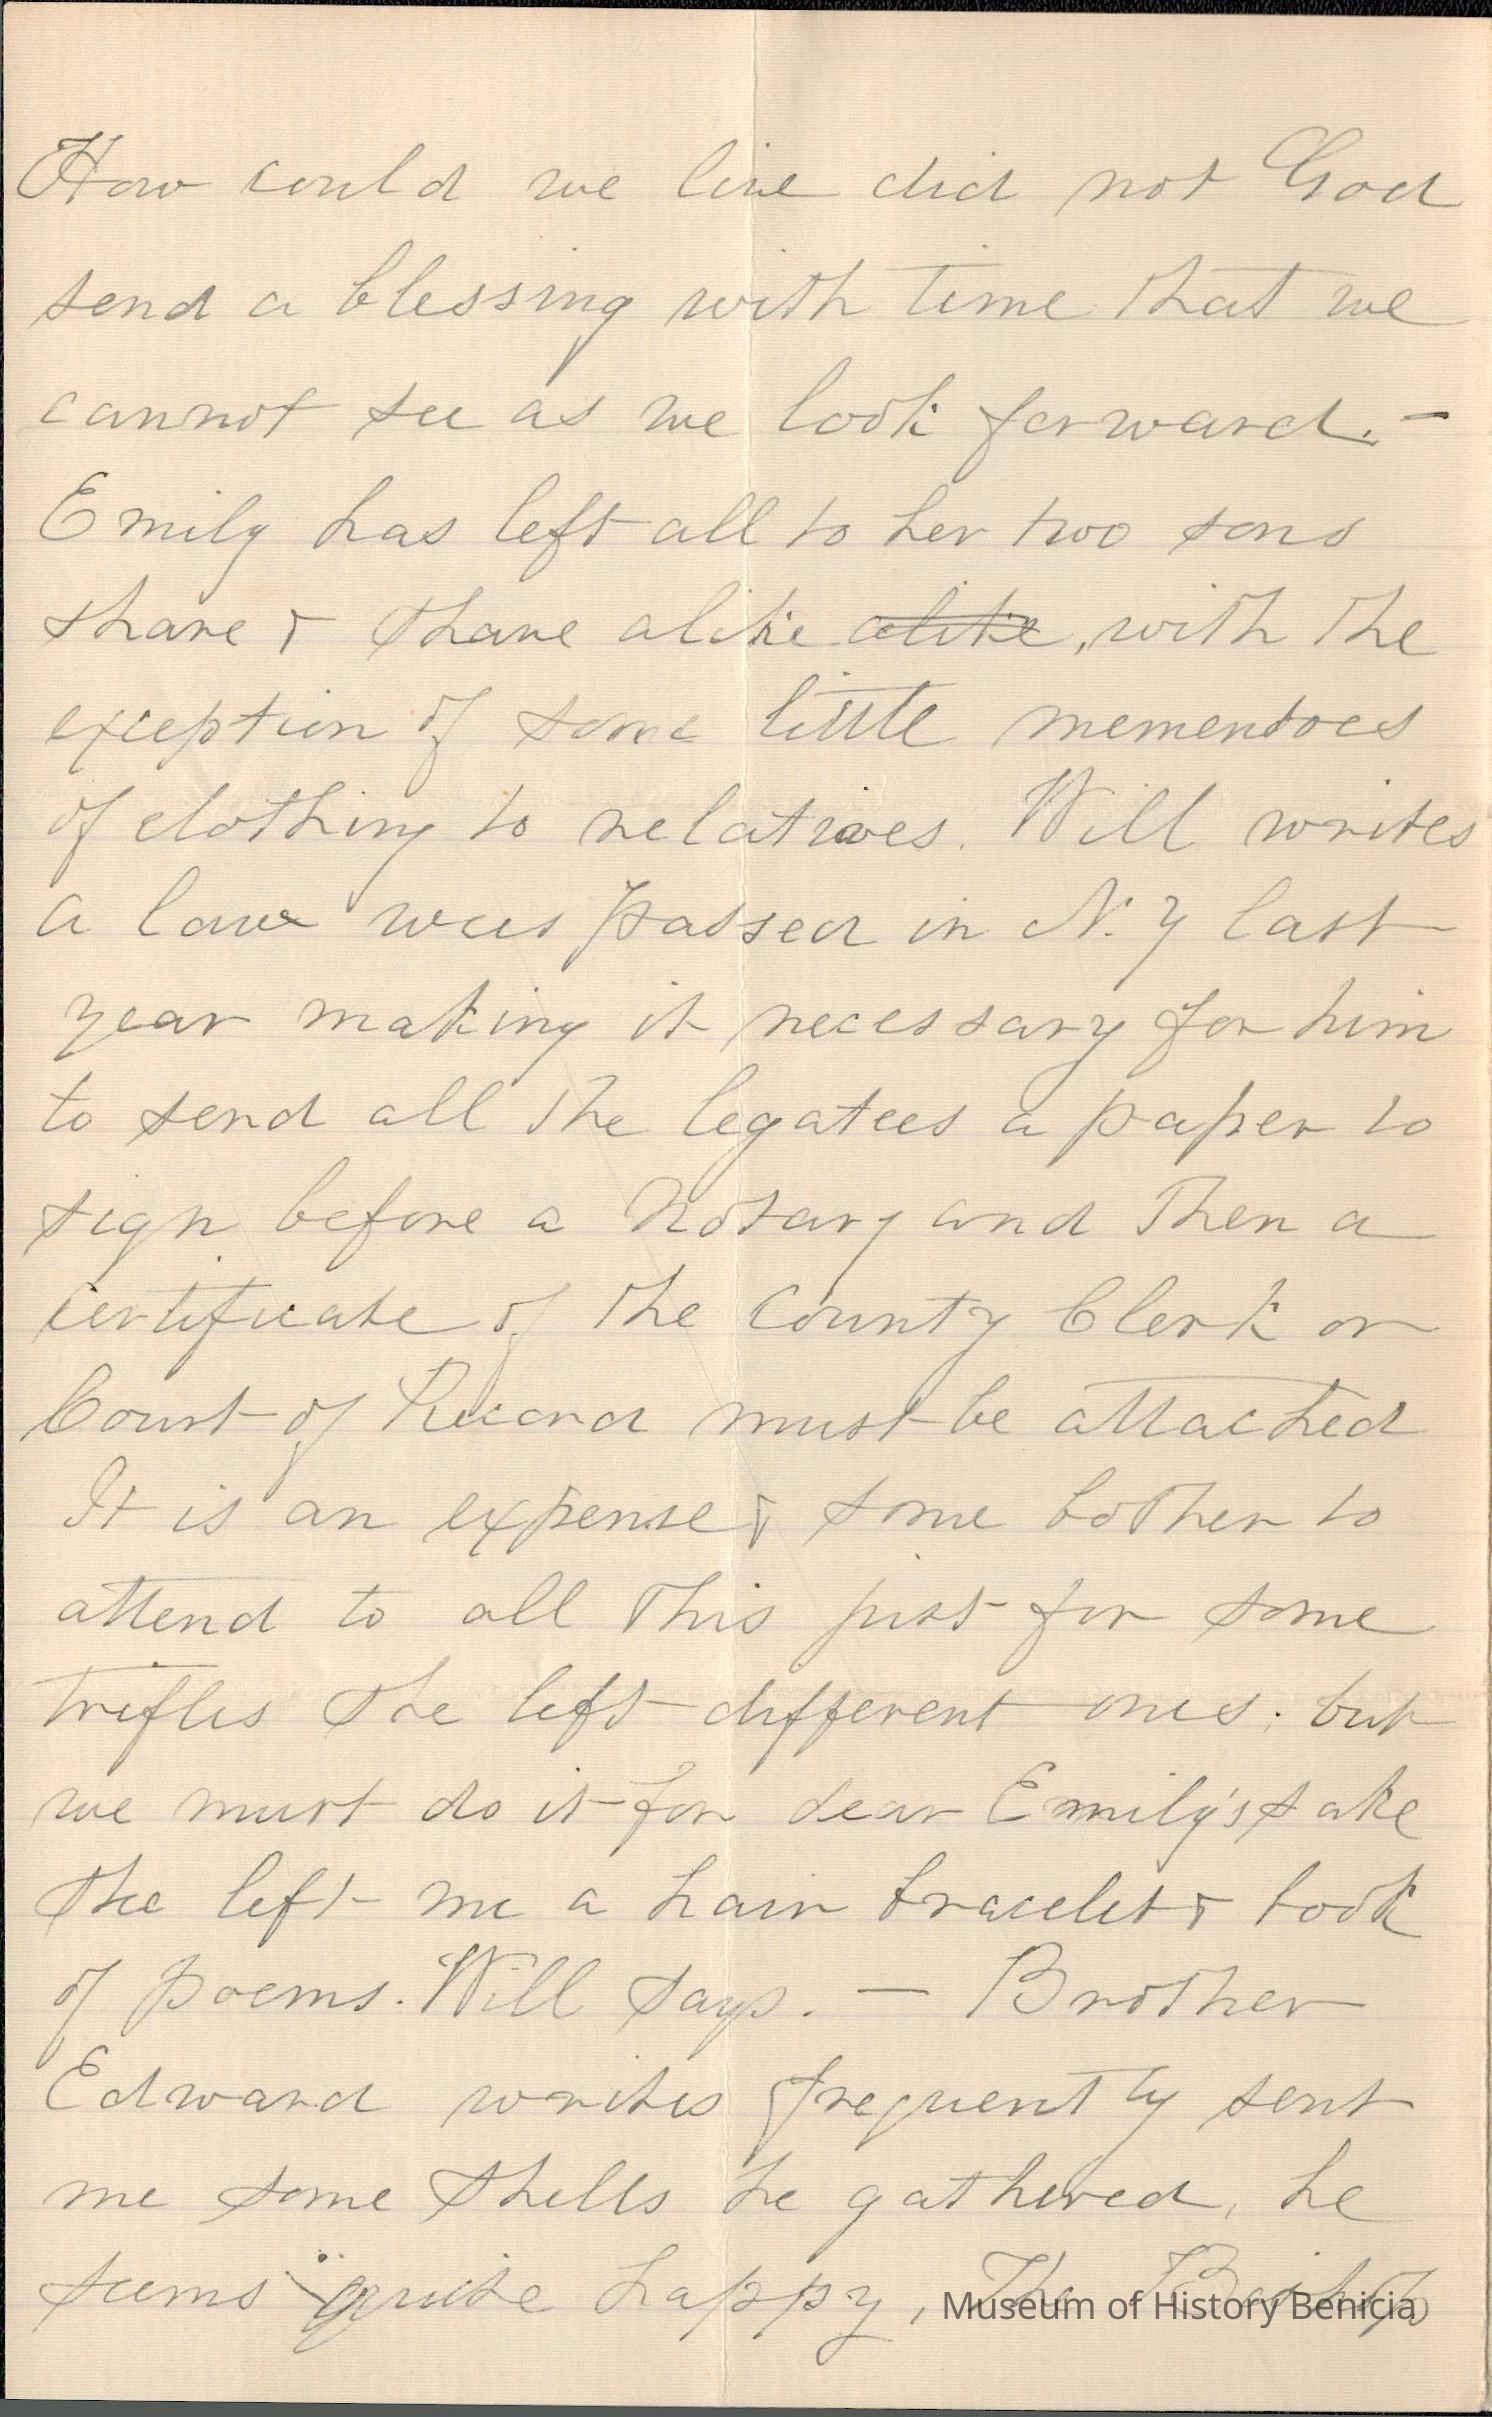 How could we live did not God
send a blessing with time that we
cannot see as we look forward. –
Emily has left all to her two sons
share & share alike alike, with the
exception of some little mementoes
of clothing to relatives. Will writes
a law was passed in N. Y last
year making it necessary for him
to send all the legatees a paper to
sign before a Notary and then a
certificate of the County Clerk or
Court of Record must be attached
It is an expense & some bother to
attend to all this just for some
trifles she left different ones. but
we must do it for dear Emily's sake
She left me a hair bracelet & book
of poems. Will says. — Brother
Edward writes frequently sent
me some shells he gathered, he
seems quite happy, The
Museum of History Benicia